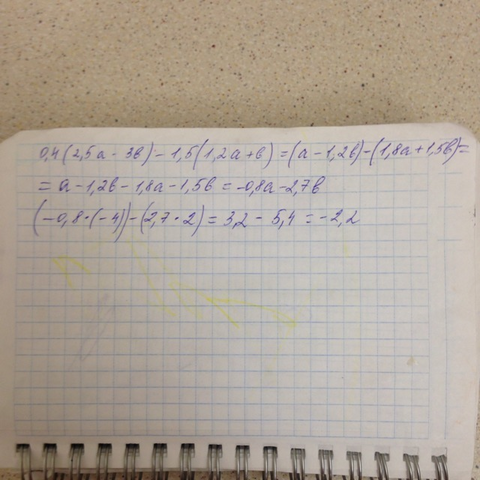 0,4(2,5а - 3в) - 1,5(1,2а + в) = (а - 1,2в) - (1,8а + 1,5в) =
= а - 1,2в - 1,8а - 1,5в = -0,8а - 2,7в
(-0,8 · (-4)) - (2,7 · 2) = 3,2 - 5,4 = -2,2